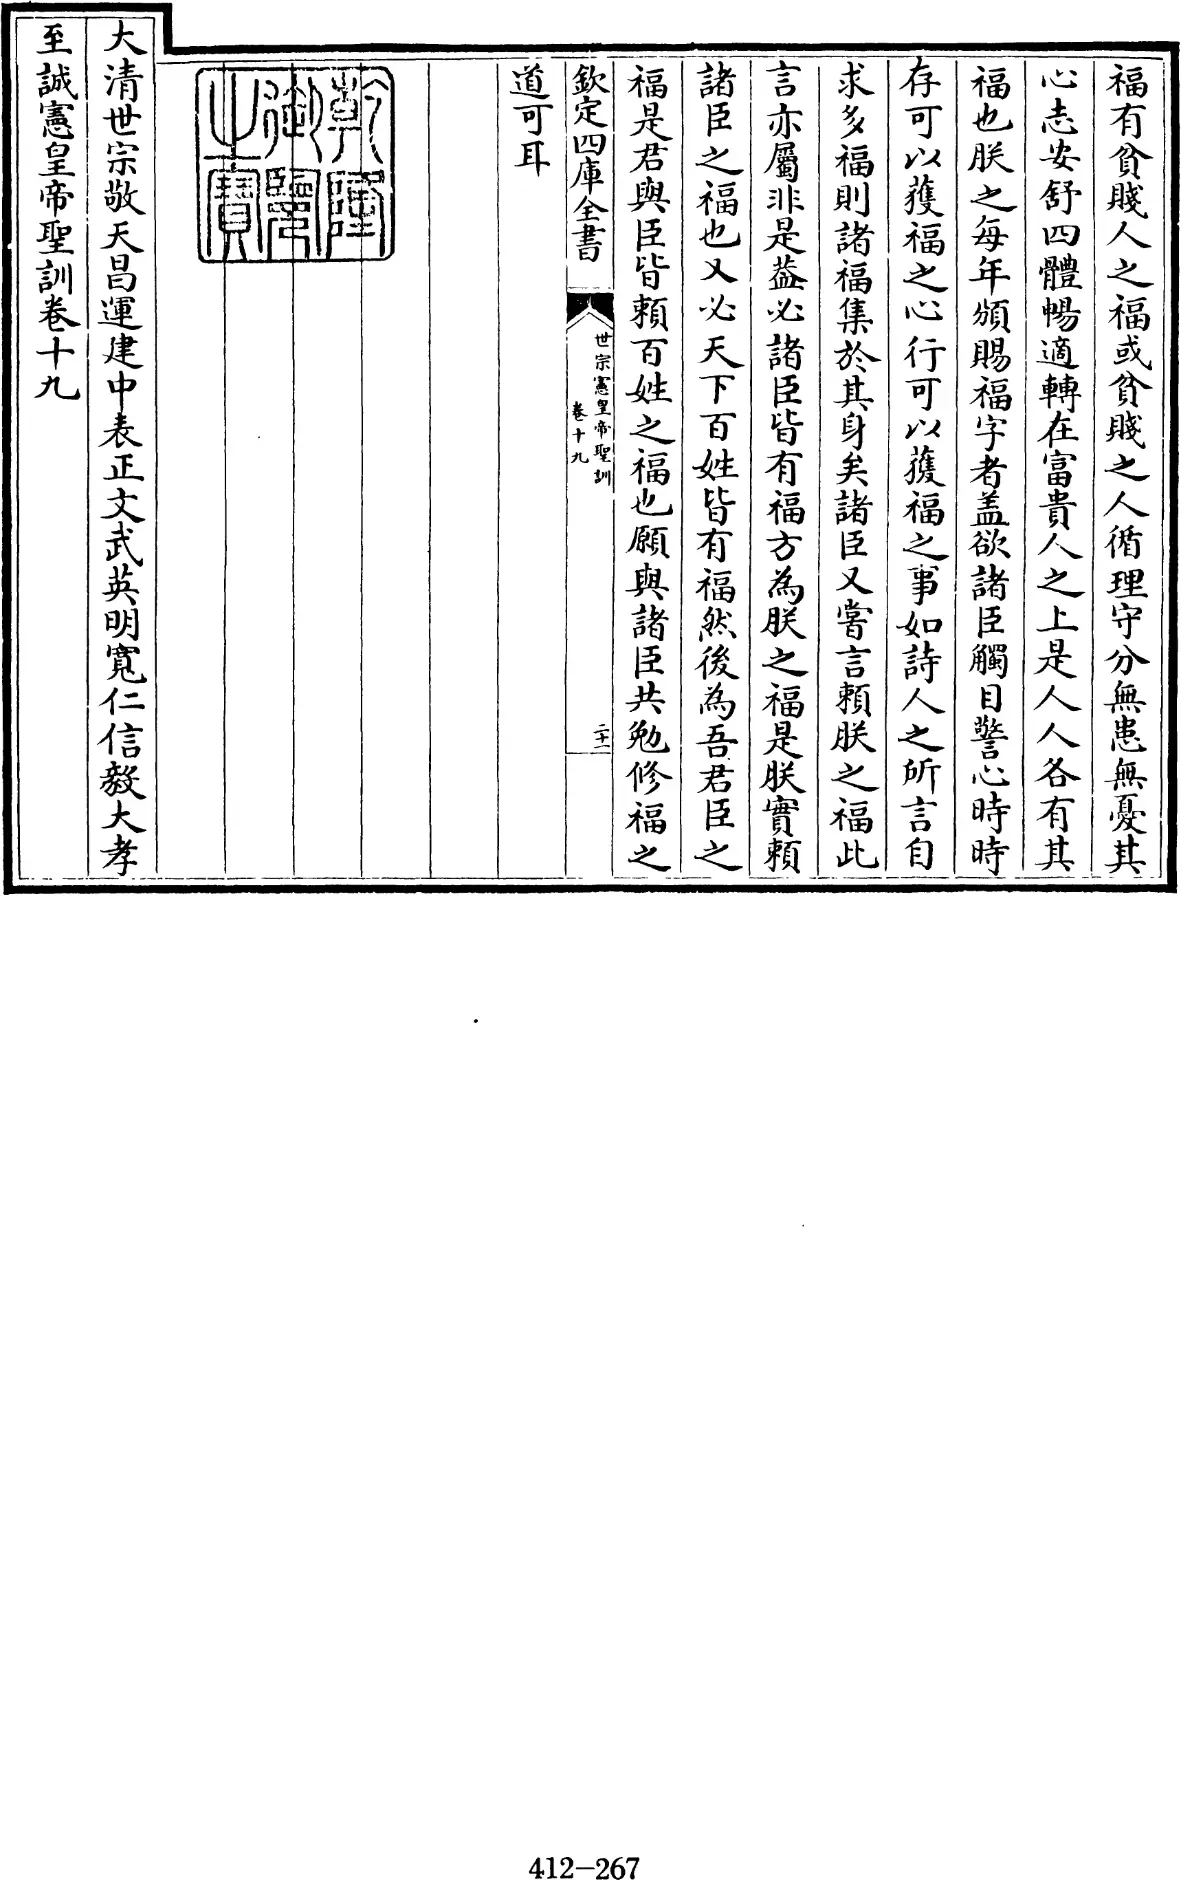 福有貧賤人之福或貧賤之人循理守分無患無憂其
心志安舒四體暢適轉在富貴人之上是人人各有其
福也朕之每年頒賜福字者蓋欲諸臣觸目警心時時
存可以獲福之心行可以獲福之事如詩人之所言自
求多福則諸福集於其身矣諸臣又嘗言賴朕之福此
言亦屬非是葢必諸臣皆有福方為朕之福是朕實賴
諸臣之福也又必天下百姓皆有福然後為吾君臣之
福是君與臣皆賴百姓之福也願與諸臣共勉修福之
欽定四庫全書
世宗憲皇帝聖訓
卷十九
二十二
道可耳
乾隆
御覽
之寶
大清世宗敬天昌運建中表正文武英明寬仁信毅大孝
至誠憲皇帝聖訓卷十九
412-267